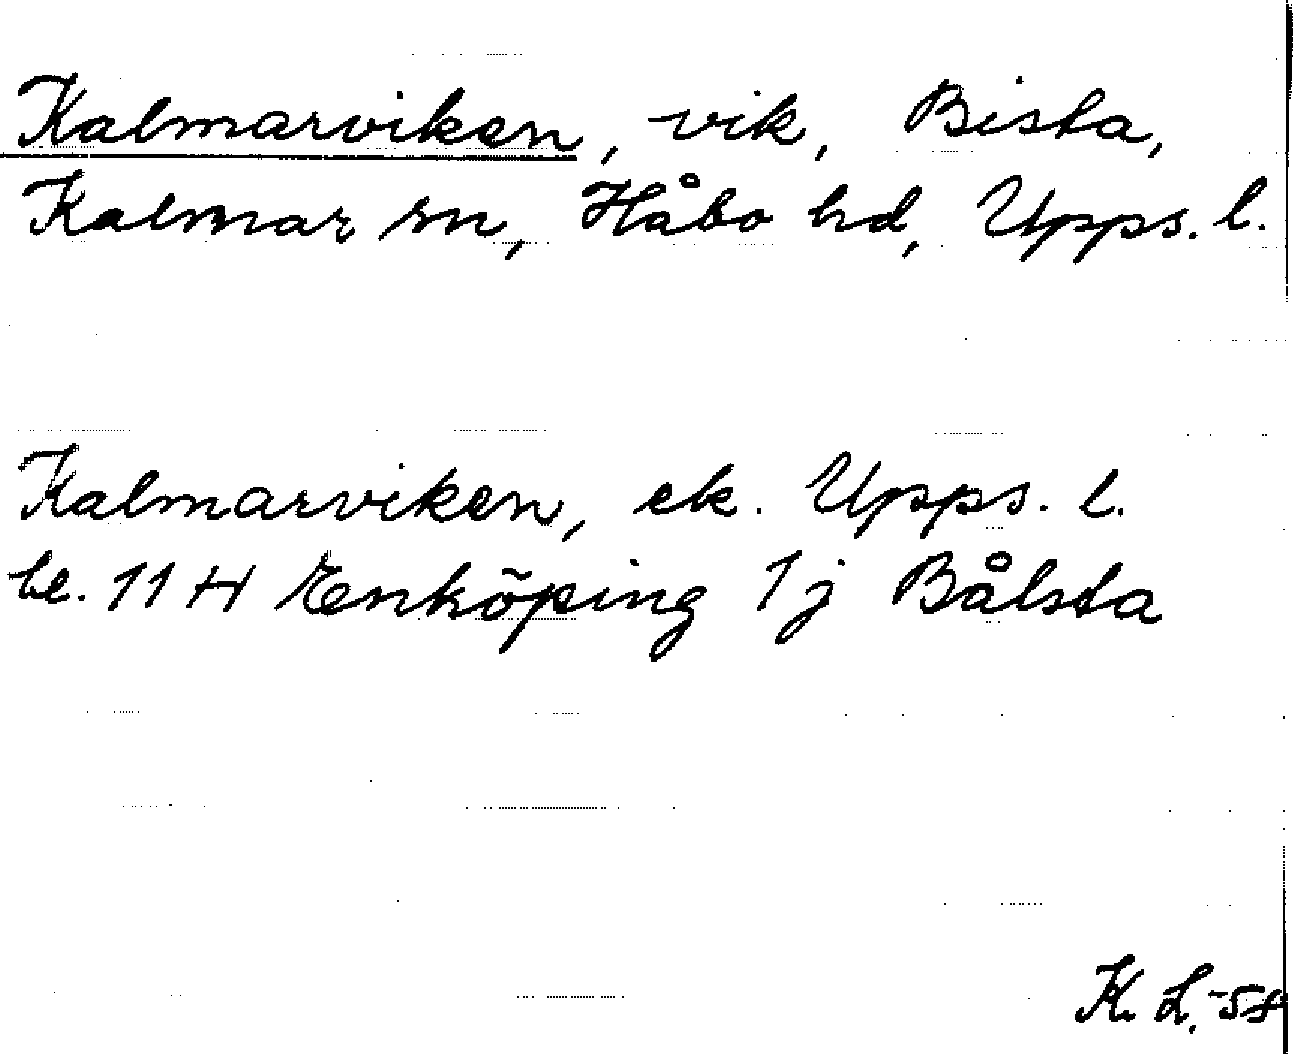 Kalmarviken, vik, Bista,
Kalmar sn, Håbo hd, Upps. l.
Kalmarviken, ek. Upps. l.
bl. 11 H Enköping 1 j Bålsta
K. L. -58